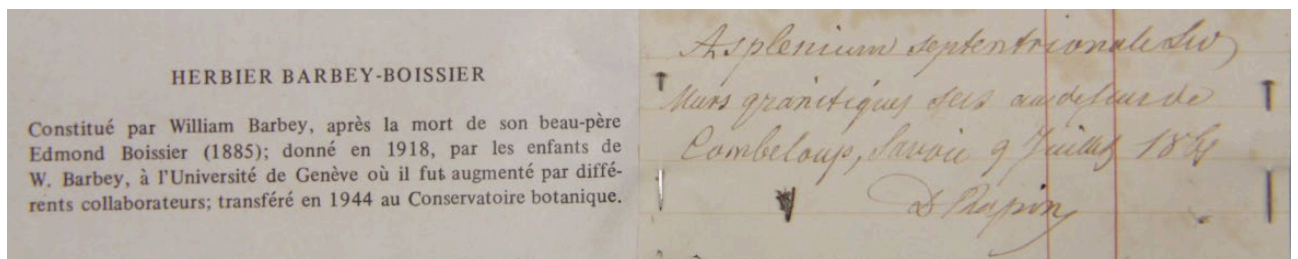 HERBIER BARBEY-BOISSIER
Constitué par William Barbey, après la mort de son beau-père
Edmond Boissier (1885); donné en 1918, par les enfants de
W. Barbey, à l'Université de Genève où il fut augmenté par diffé-
rents collaborateurs; transféré en 1944 au Conservatoire botanique.
Asplenium septentrionale Sw
Murs granitiques secs au dessus de
Combeloup, Savoie 9 Juillet
D Rapin